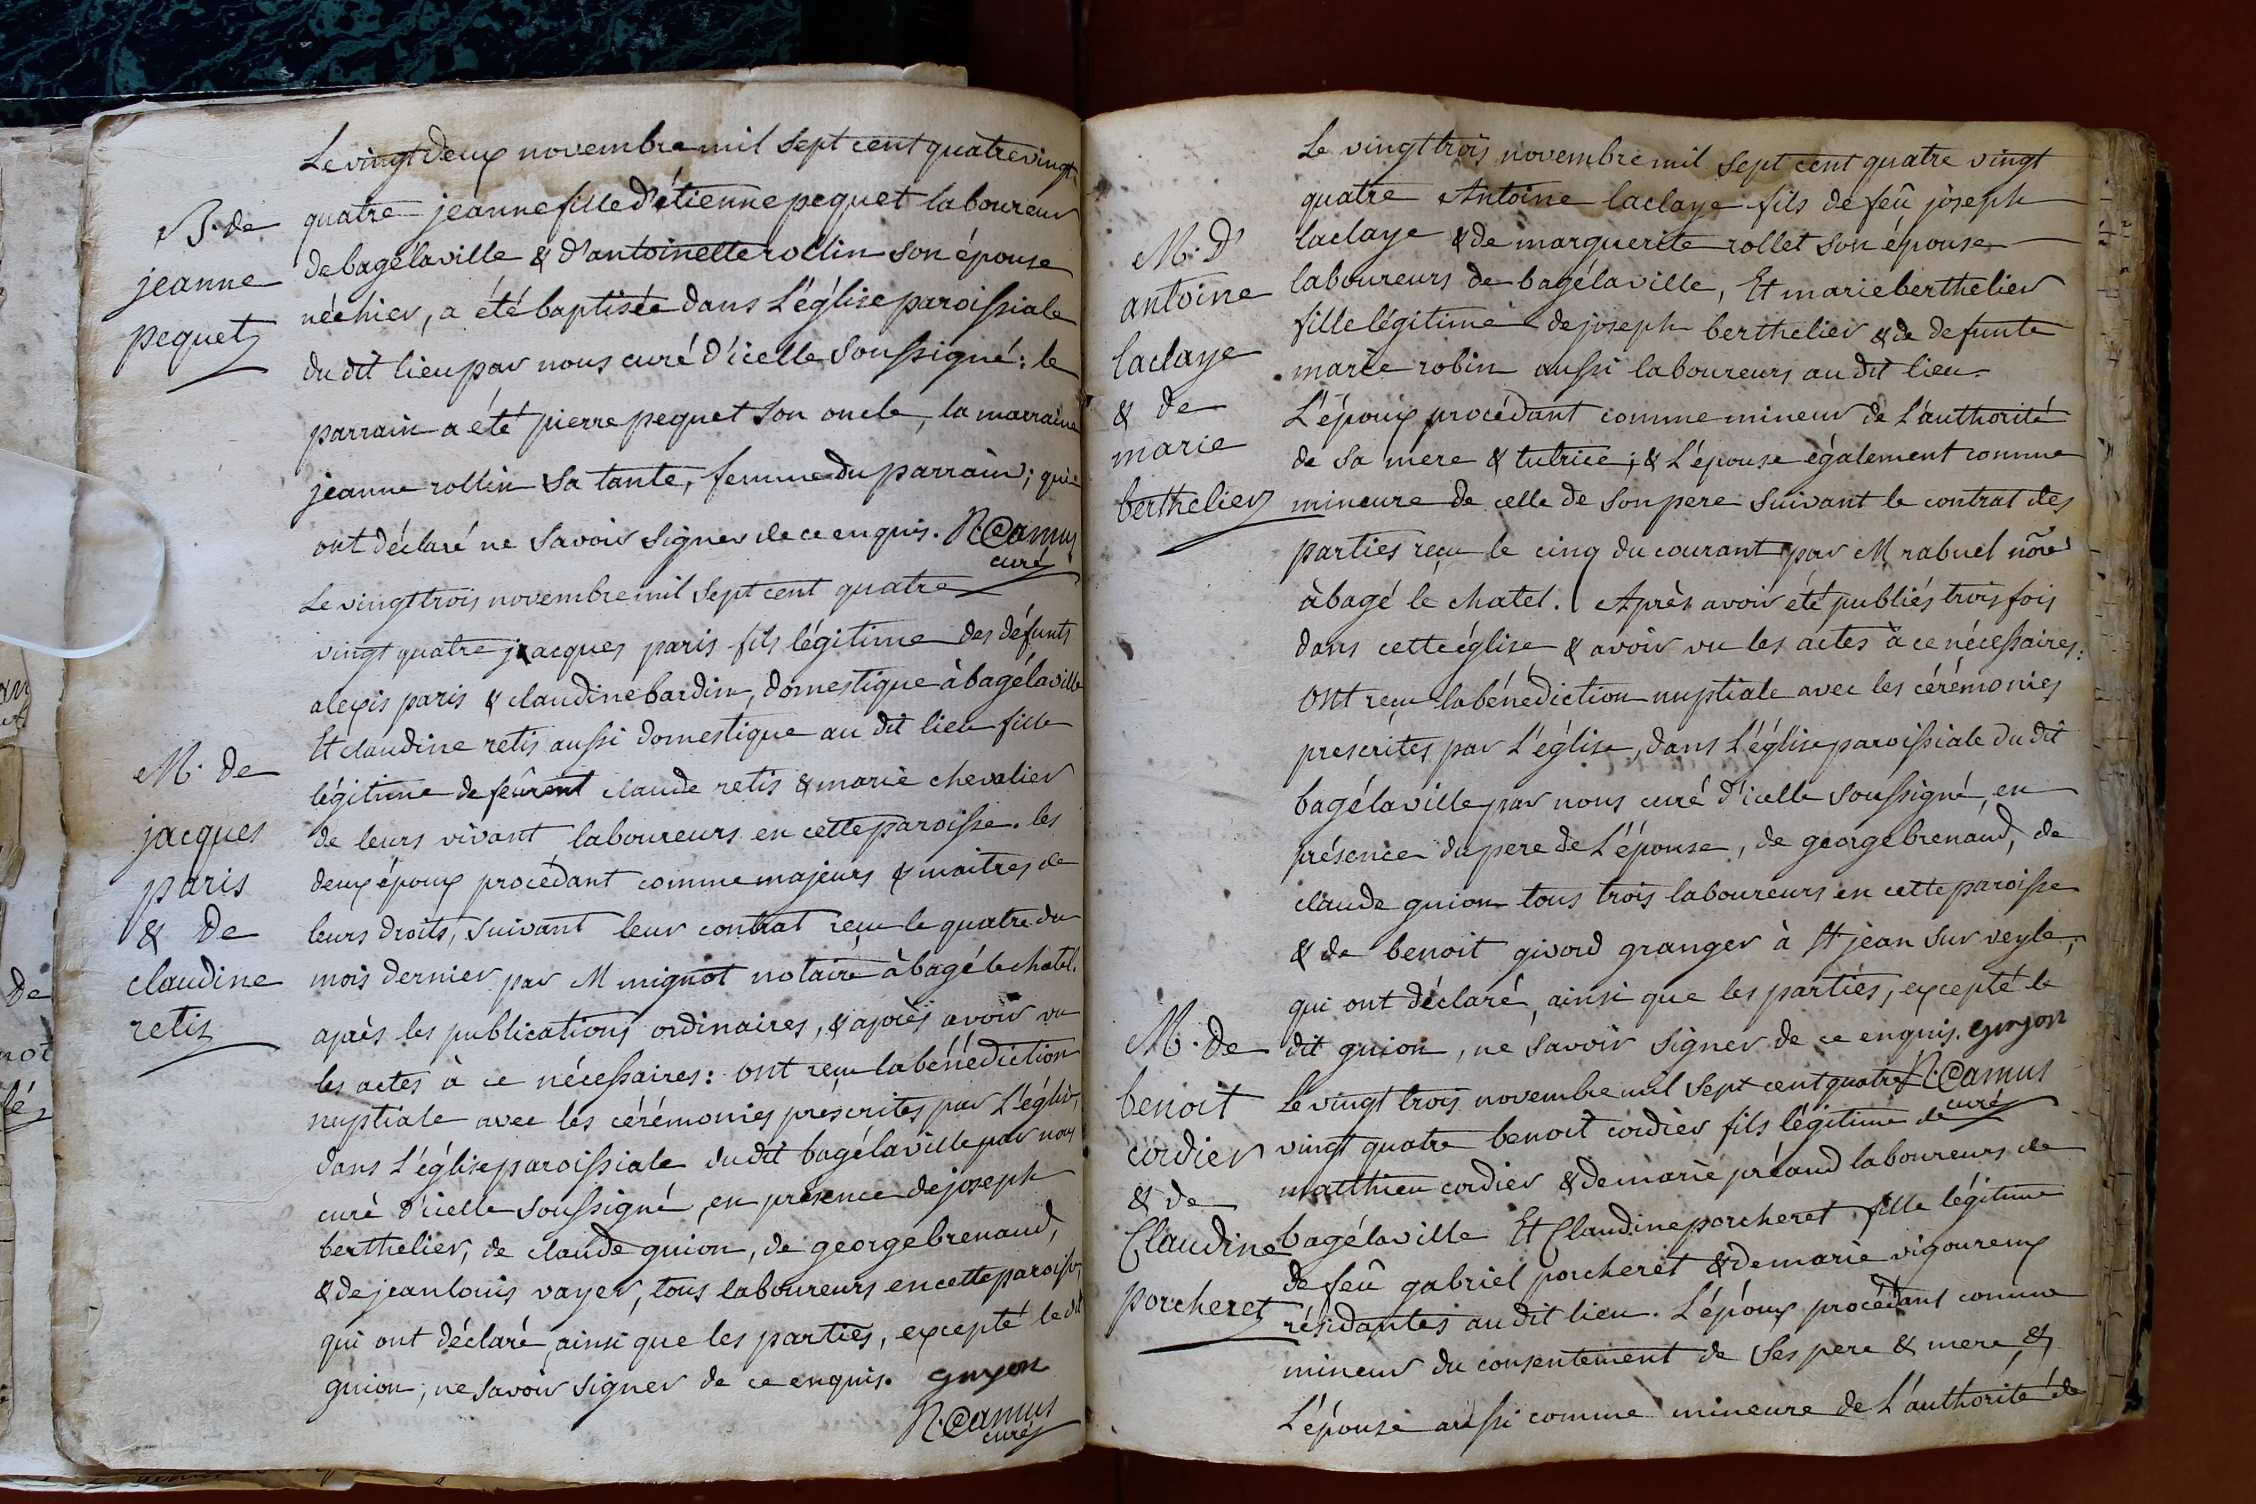 Le vingt deux novembre mil sept cent quatre vingt
B. de
jeanne
pequet
quatre jeanne fille d'étienne pequet laboureur
de bagélaville & d'antoinette rollin son épouse
née hier, a été baptisée dans L'église paroissiale
du dit lieu par nous curé d'icelle soussigné: le
parrain a été pierre pequet son oncle, la marraine
jeanne rollin sa tante, femme du parrain; qui
ont déclaré ne savoir signer de ce enquis. N. Camus
curé
M. de
jacques
paris
& de
claudine
retis
Le vingt trois novembre mil sept cent quatre
vingt quatre jacques paris fils légitime des défunts
alexis paris & claudine bardin, domestique à bagélaville
Et claudine retis aussi domestique au dit lieu fille
légitime de feûrent claude retis & marie chevalier
de leurs vivant laboureurs en cette paroisse. les
deux époux procédant comme majeurs & maitres de
leurs droits, suivant leur contrat reçu le quatre du
mois dernier par M mignot notaire à bagé le chatel.
après les publications ordinaires, & après avoir vu
les actes à ce nécessaires: ont reçu la bénédiction
nuptiale avec les cérémonies prescrites par L'église,
dans L'église paroissiale du dit bagélaville par nous
curé d'icelle soussigné, en présence de joseph
berthelier, de claude guion, de george brenaud,
& de jean louis vayer, tous laboureurs en cette paroisse,
qui ont déclaré, ainsi que les parties, excepté le dit
guion, ne savoir signer de ce enquis. guyon
N. Camus
curé
M. D'
antoine
laclaye
& de
marie
berthelier
Le vingt trois novembre mil sept cent quatre vingt
quatre Antoine laclaye fils de feû joseph
laclaye & de marguerite rollet son épouse
laboureurs de bagélaville, Et marie berthelier
fille légitime de joseph berthelier & de defunte
marie robin aussi laboureurs au dit lieu.
L'époux procédant comme mineur de L'authorité
de sa mere & tutrice; & L'épouse également comme
mineure de celle de son pere suivant le contrat des
parties reçu le cinq du courant par M rabuel nôre
à bagé le chatel. Après avoir été publiés trois fois
dans cette église & avoir vu les actes à ce nécessaires:
ont reçu la bénédiction nuptiale avec les cérémonies
prescrites par L'église, dans L'église paroissiale du dit
bagélaville par nous curé d'icelle soussigné, en
présence du pere de L'épouse, de george brenaud, de
claude guion tous trois laboureurs en cette paroisse
& de benoit givord granger à St jean sur veyle,
qui ont déclaré, ainsi que les parties, excepté le
dit guion, ne savoir signer de ce enquis. guyon
N. Camus
curé
M. de
benoit
cordier
& de
Claudine
porcheret
Le vingt trois novembre mil sept cent quatre
vingt quatre benoit cordier fils légitime de
matthieu cordier & de marie préaud laboureurs de
bagélaville Et Claudine porcheret fille légitime
de feû gabriel porcheret & de marie vigoureux
résidantes au dit lieu. L'époux procédant comme
mineur du consentement de ses pere & mere, &
L'épouse aussi comme mineure de L'authorité de